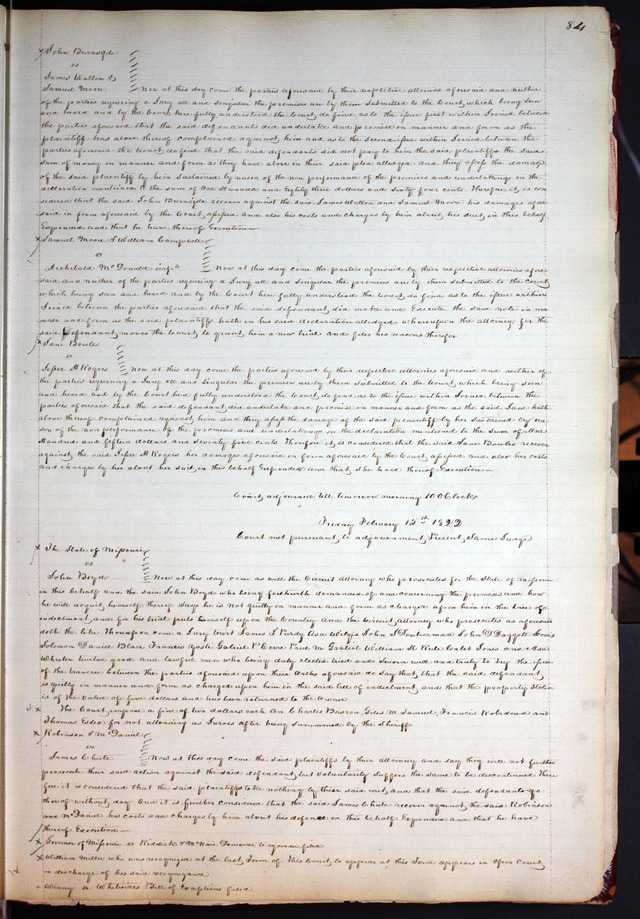 84
John Burnsyde
vs
James Walton &
Samuel Moore Now at this day come the parties aforesaid by their respective attornies aforesaid and neither
of the parties requiring a Jury all and singular the premises are by them submitted to the Court, which being seen
and heard and by the Court here fully understood the Court do find as to the issue first within Joined between
the parties aforesaid that the said defendants did undertake and promise in manner and form as the
plaintiff has above thereof complained against him and as to the second issue within Joined between the
parties aforesaid the Court do find that the said defendants did not pay to him the said plaintiff the said
sum of money in manner and form as they have above in their said plea alledged and they assess the damages
of the said plaintiff by him sustained by reason of the non performance of the premises and undertakings in the
declaration mentioned to the sum of One Hundred and Eighty three dollars and sixty four cents. Therefore it is con
sidered that the said John Burnsyde recover against the said James Walton and Samuel Moore his damages afore
said in form aforesaid by the Court assessed and also his costs and charges by him about his suit in this behalf
Expended and that he have thereof Execution—
Samuel Moore & William Campbell
vs
Archibald McDonald Now at this day come the parties aforesaid by their respective attornies afore
said and neither of the parties requiring a Jury all and singular the premises are by them submitted to the court
which being seen and heard and by the Court here fully understood the Court do find as to the issue within
Joined between the parties aforesaid that the said defendant did make and Execute the said note in man
ner and form as the said plaintiffs hath in his said declaration alledged whereupon the attorney for the
said Defendant moves the Court to grant him a new trial and files his reasons therefor
Jane Bowles
vs
Jesse H Rogers Now at this day come the parties aforesaid by their respective attornies and neither of
the parties requiring a Jury all and singular the premises are by them submitted to the Court, which being seen
and heard and by the Court here fully understood the Court do find as to the issue within Joined between the
parties aforesaid that the said defendant did undertake and promise in manner and form as the said Jane hath
above thereof complained against him and they assess the damage of the said plaintiff by her sustained by rea
son of the non performance of the premises and undertakings in the declaration mentioned to the sum of One
Hundred and fifteen dollars and seventy five cents Therefore it is considered that the said Jane Bowles recover
against the said Jesse H Rogers her damages aforesaid in form aforesaid by the Court assessed and also her costs
and charges by her about her suit in this behalf Expended and that she have thereof Execution—
Court adjourned till tomorrow morning 10 OClock
Friday February 15th 1822
Court met pursuant to adjournment, Present, Same Judge
The State of Missouri
vs
John Boyde Now at this day come as well the Circuit Attorney who prosecutes for the State of Missouri
in this behalf and the said John Boyde who being forthwith demanded of and concerning the premises and how
he will acquit himself thereof says he is not guilty in manner and form as charged upon him in the bill of
indictment and for his trial puts himself upon the Country and the circuit attorney who prosecutes as aforesaid
doth the like Thereupon come a Jury towit James & Purdy John D Daggett Louis
Solomon Daniel Blair Francis Gabriel P Cerre Paul M Gratiot William St Jones and Asa
Wheeler twelve good and lawful men who being duly elected tried and sworn well and truly to try the issue
of the traverse between the parties aforesaid upon their Oaths aforesaid do say that, that the said defendant
is guilty in manner and form as charged upon him in the said bill of indictment, and that the property stolen
is of the value of five dollars and has been returned to the owner
The Court impose a fine of two dollars each on Charles Busson Giles M Samuel, Francis Robidoux and
Thomas Estes for not attending as Jurors after being summoned by the Sheriff
Robinson & McDaniel
vs
James White Now at this day come the said plaintiffs by their attorney and say they will not further
prosecute their said action against the said defendant but voluntarily suffers the same to be discontinued There
fore it is considered that the said plaintiffs take nothing by their said writ and that the said defendants go
thereof without day And it is further considered that the said James White recover against the said Robinson
and McDaniel his costs and charges by him about his defence in this behalf Expended and that he have
thereof Execution—
Governor of Missouri vs Riddick & McNair Demurrer to filed
William Miller who was recognized at the last Term of This Court to appear at this Term appears in Open Court
in discharge of his said recognizance
Winny vs Whitesides Bill of Exceptions filed